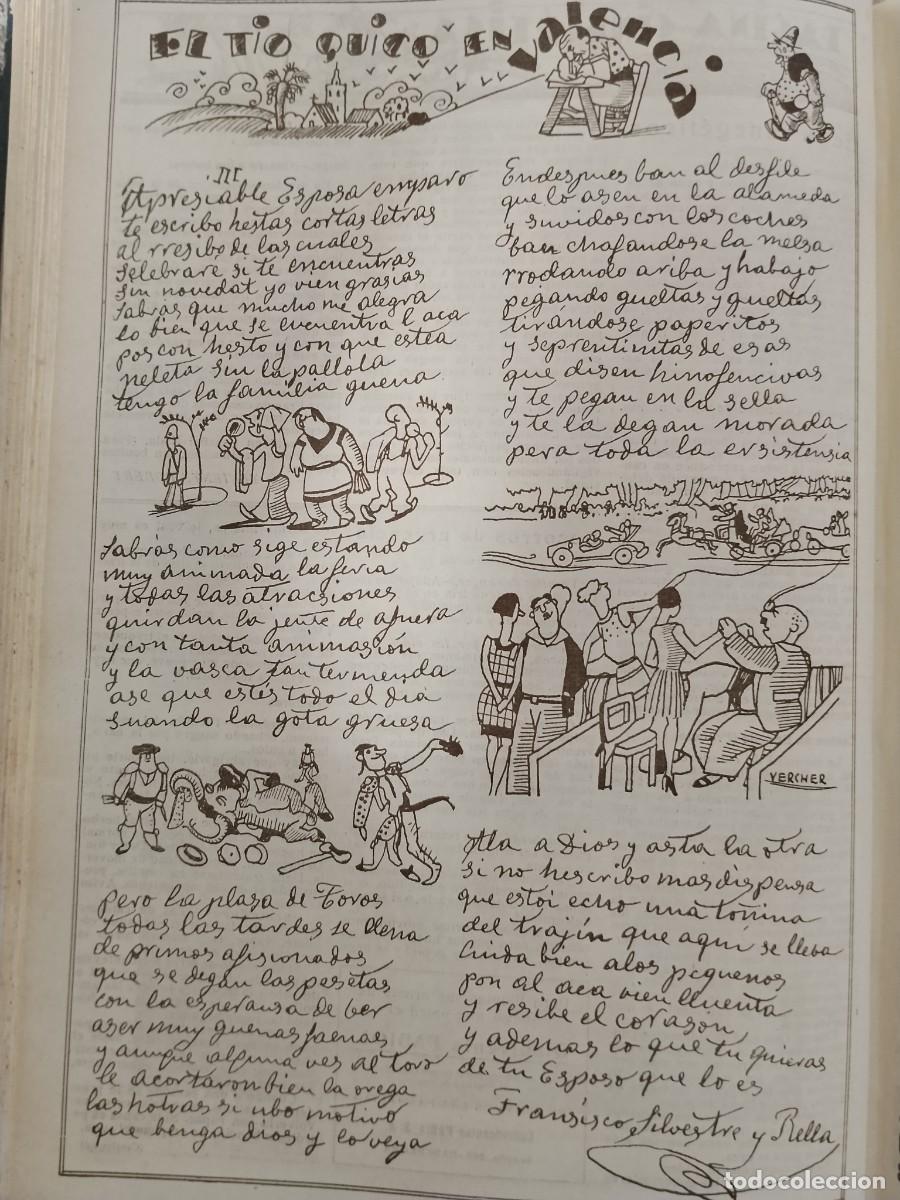 EL TIO QUICO EN Valencia
III
Apresiable Esposa emparo
te escribo hestas cortas letras
al rresibo de las cuales
selebraré si te encuentras
sin novedat yo vien grasias
sabrás que mucho me alegra
lo bien que se encuentra l'aca
pos con hesto y con que estea
neleta sin la pallola
tengo la familia guena
Sabrás como sige estando
muy animada la feria
y todas las atracsiones
guirdan la jente de afuera
y con tanta animasión
y la vasca tan termenda
ase que estes todo el dia
suando la gota gruesa
pero la plasa de Toros
todas las tardes se llena
de primos afisionados
que se degan las pesetas
con la esperansa de ber
aser muy guenas faenas
y aunque alguna ves al toro
le acortaron bien la orega
las hotras si ubo motivo
que benga dios y lo veya
Endespues ban al desfile
que lo asen en la alameda
y suvidos con los coches
ban chafandose la melsa
rrodando ariba y habajo
pegando gueltas y gueltas
tirándose paperitos
y seprentinitas de esas
que disen hinofencivas
y te pegan en la sella
y te la degan morada
pera toda la ersistensia
VERCHER
Alla a Dios y asta la otra
si no hescribo mas dispensa
que estoi echo una toñina
del trajín que aquí se lleba
Cuida bien a los pequenos
pon al aca vien lluenta
y resibe el corasón
y ademas lo que tu quieras
de tu Esposo que lo es
Fransisco Silvestre y Rella
todocoleccion